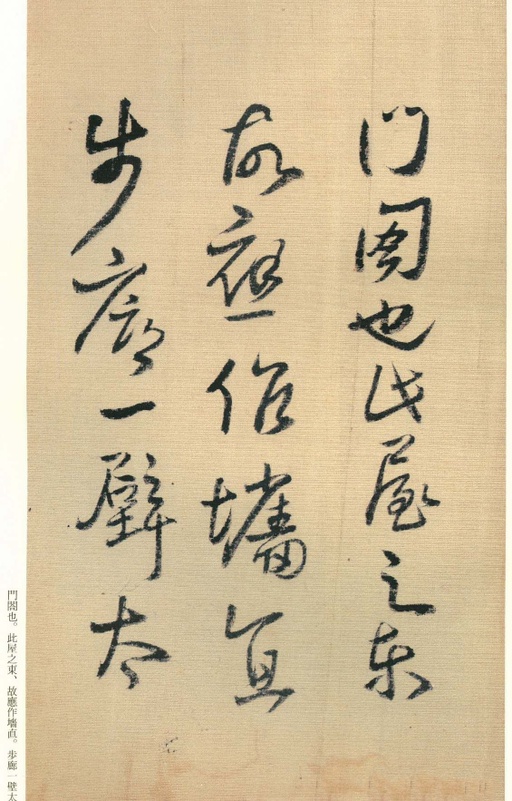 門閣也此屋之東
故應作墻直
步廊一壁太
門閣也。此屋之東、故應作墻直。步廊一壁太